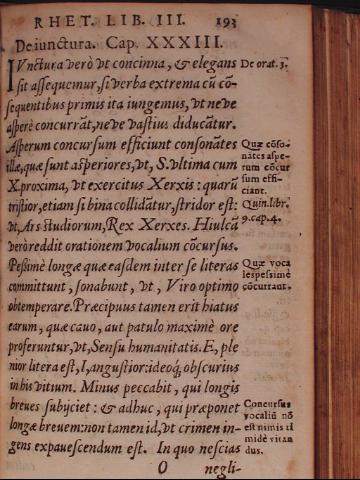 RHET. LIB. III. 193
De iunctura. Cap. XXXIII.
IVnctura verò vt concinna, & elegans De orat. 3.
sit assequemur, si verba extrema cũ cõ-
sequentibus primis ita iungemus, vt neve
asperè concurrãt, neve vastius diducãtur.
Asperum concursum efficiunt consonãtes Quæ cõso-
illæ, quæ sunt asperiores, vt, S. vltima cum nãtes aspe-
X. proxima, vt exercitus Xerxis: quarũ rum cõcur
tristior, etiam si bina collidãtur, stridor est: sum effi-
ciant.
Quin. libr.
vt, Ars studiorum, Rex Xerxes. Hiulcã 9. cap. 4.
verò reddit orationem vocalium cõcursus.
Pessimè longæ quæ easdem inter se literas Quæ voca
committunt, sonabunt, vt, Viro optimo les pessimè
obtemperare. Præcipuus tamen erit hiatus cõcurrant.
earum, quæ cauo, aut patulo maximè ore
proferuntur, vt, Sensu humanitatis. E, ple
nior litera est, I, angustior: ideoq; obscurius
in his vitium. Minus peccabit, qui longis
breues subijciet: & adhuc, qui præponet Concursus
longæ breuem: non tamen id, vt crimen in- vocaliũ nõ
est nimis ti
gens expauescendum est. In quo nescias midè vitan
dus.
O negli-